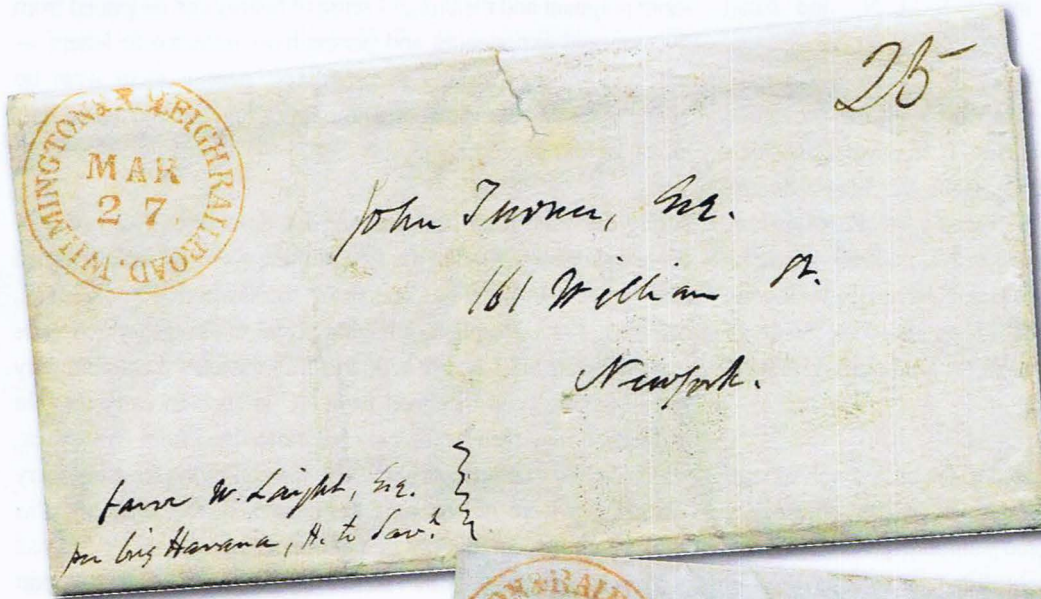 25
WILMINGTON & RALEIGH RAILROAD.
MAR
27.
John Turner, Esq.
161 William St.
New York.
favor W. Laight, Esq.
per brig Havana, H. to Sav.h